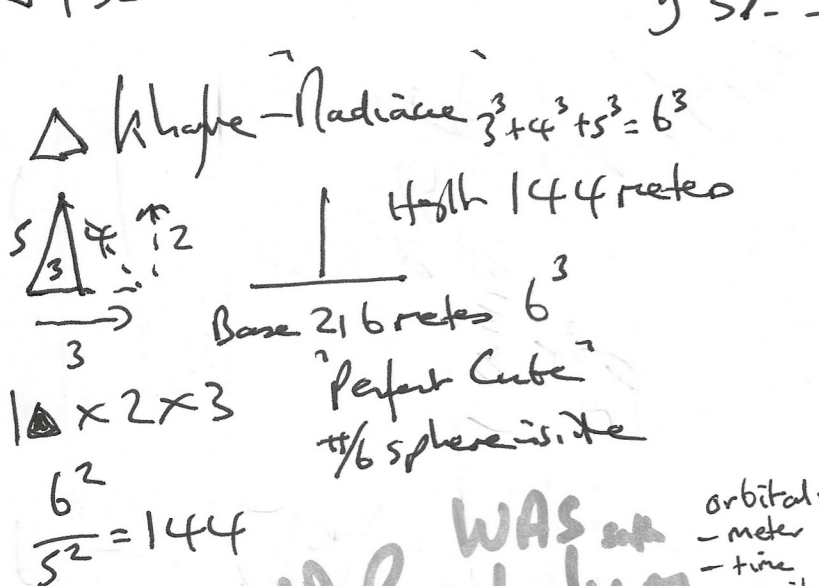 △ Khafre - "Radiance" 3³+4³+5³=6³
Height 144 meters
5 3 4 2
3
Base 216 meters 6³
"Perfect Cube"
1 × 2 × 3
π/6 sphere inside
6²/5² = 144
WAS
orbital
- meter
- time